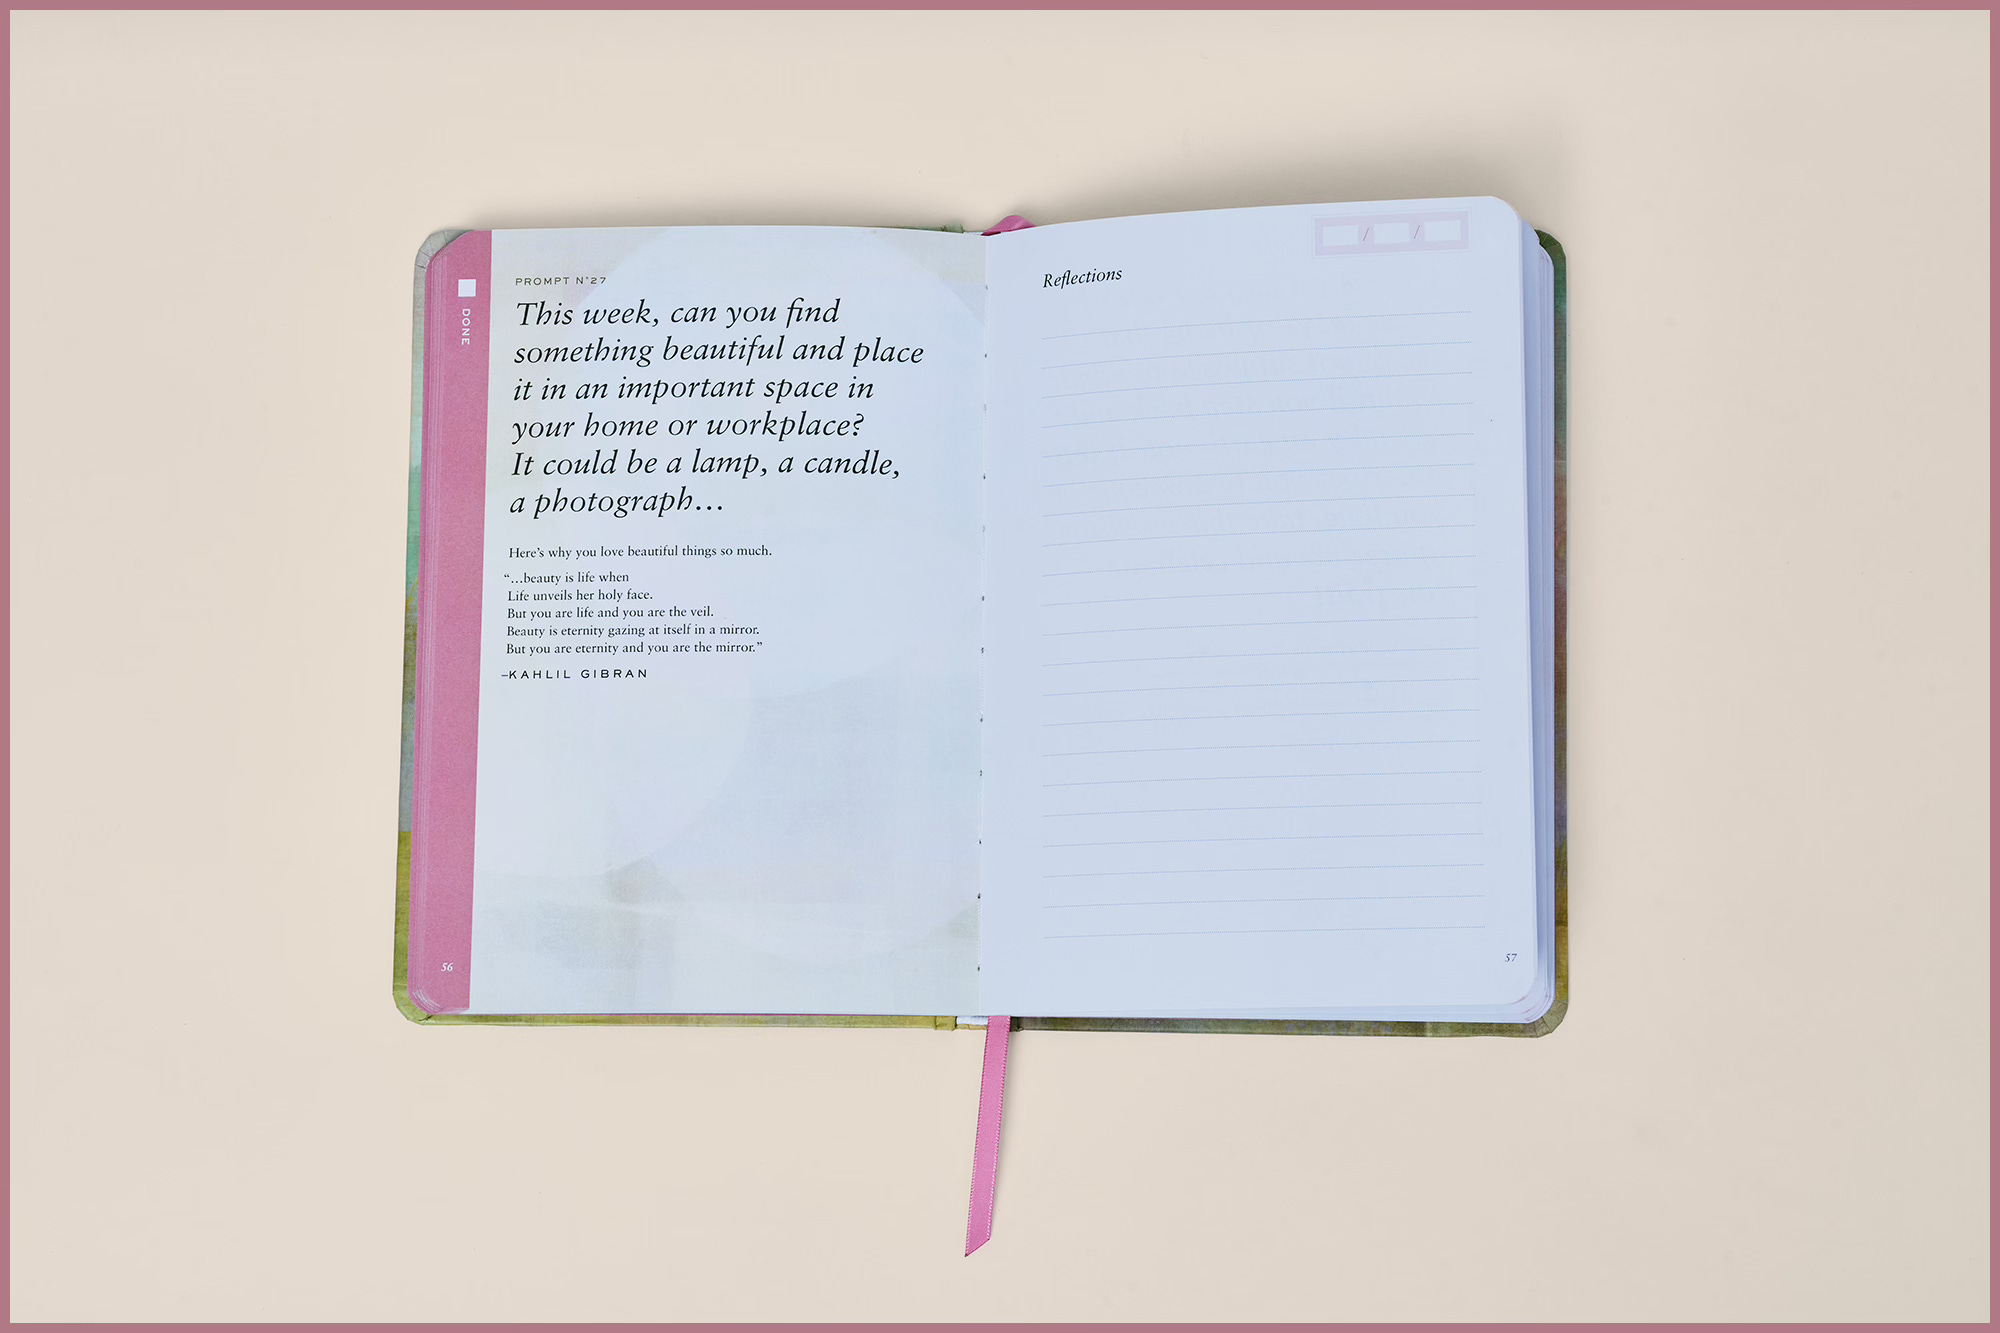 DONE
PROMPT N°27
This week, can you find
something beautiful and place
it in an important space in
your home or workplace?
It could be a lamp, a candle,
a photograph...
Here's why you love beautiful things so much.
“...beauty is life when
Life unveils her holy face.
But you are life and you are the veil.
Beauty is eternity gazing at itself in a mirror.
But you are eternity and you are the mirror.”
–KAHLIL GIBRAN
56
/ /
Reflections
57